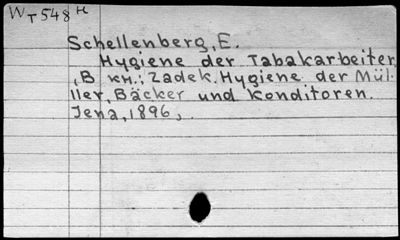 WT548H
Schellenberg, E.
Hygiene der Tabakarbeiter
, В кн.; Zadek. Hygiene der Mül-
ller, Bäcker und Konditoren.
Jena, 1896,.